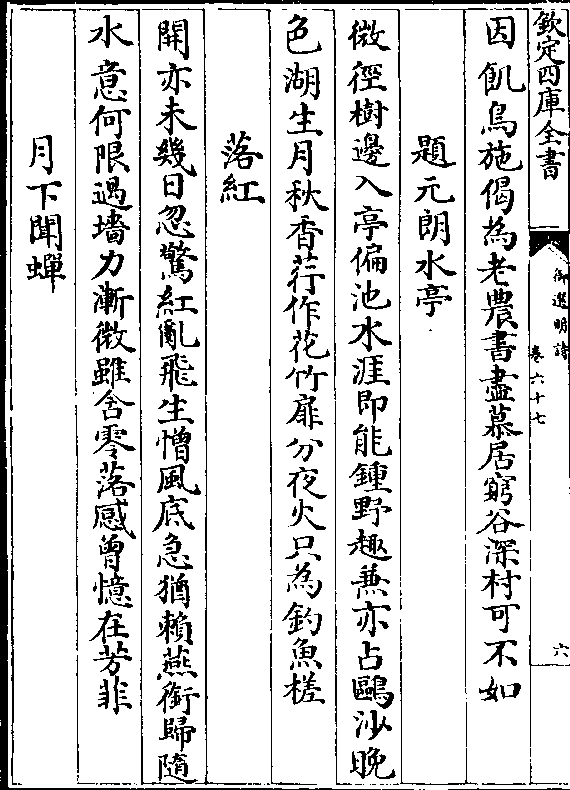 欽定四庫全書
御選明詩
卷六十七
六
因飢鳥施偈為老農書盡慕居窮谷深村可不如
題元朗水亭
微徑樹邊入亭偏池水涯即能鍾野趣兼亦占鷗沙晚
色湖生月秋香荇作花竹扉分夜火只為釣魚槎
落紅
開亦未幾日忽驚紅亂飛生憎風底急猶賴燕銜歸隨
水意何限過墻力漸微雖含零落感曾憶在芳菲
月下聞蟬